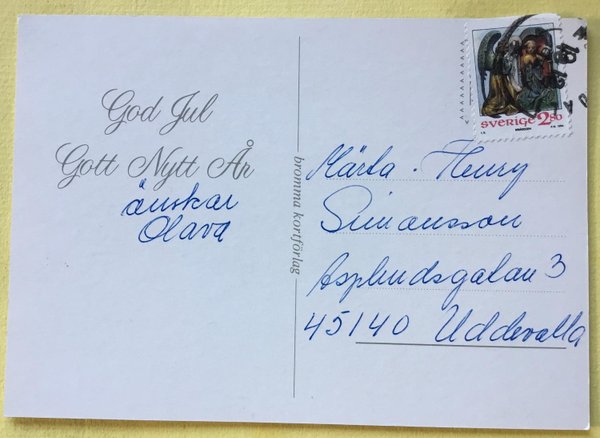 God Jul
Gott Nytt År
önskar
Olava
bromma kortförlag
SVERIGE 2.50
Märta. Henry
Simonsson
Asplundsgatan 3
45140 Uddevalla